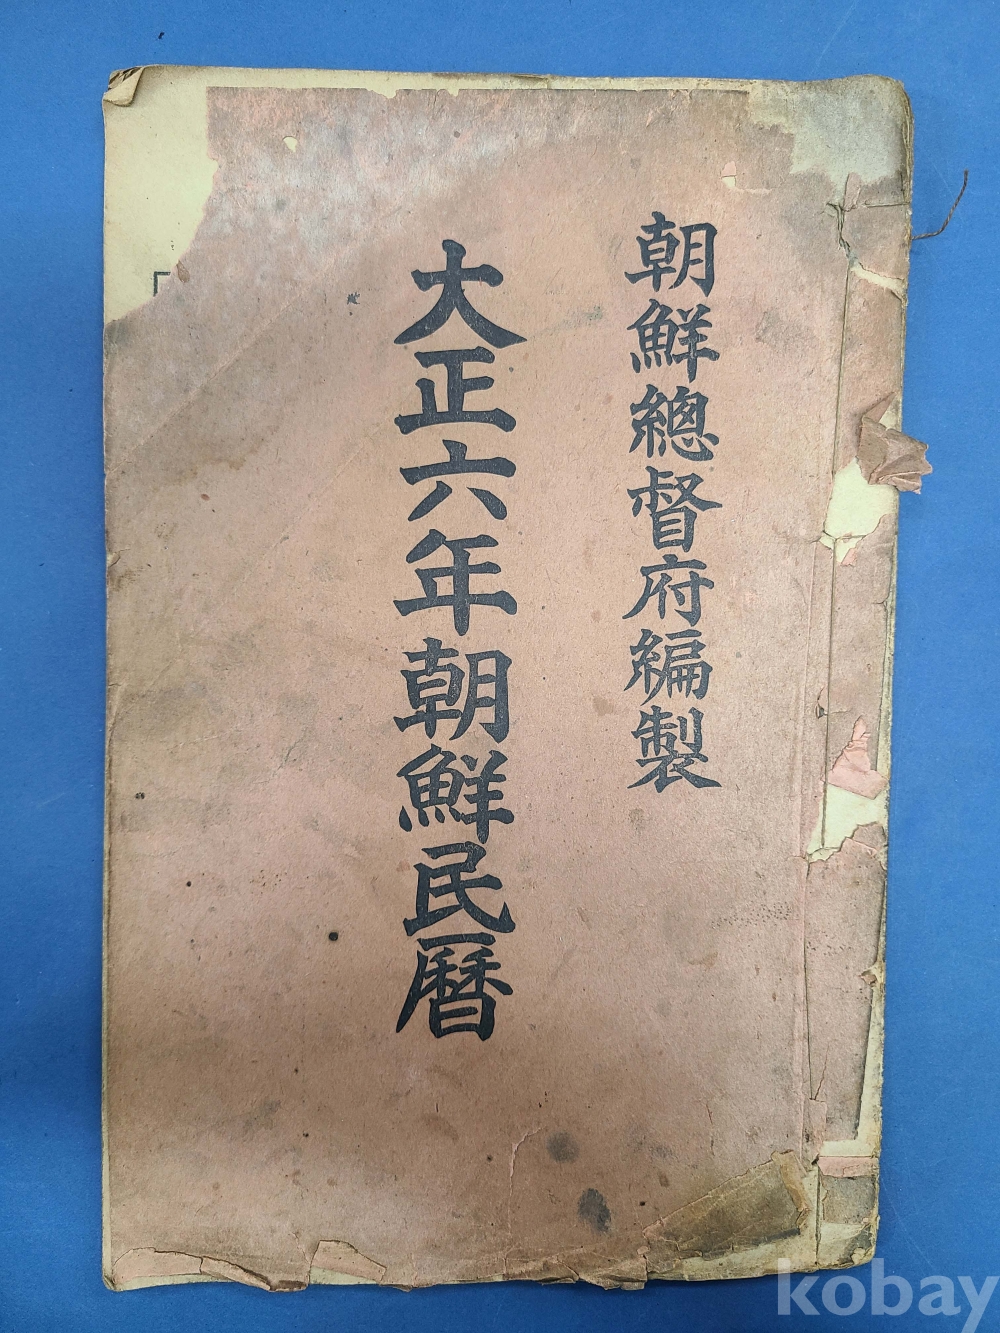 朝鮮總督府編製
大正六年朝鮮民曆
kobay